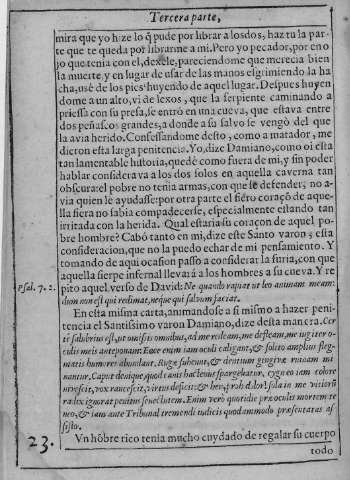 Tercera parte,
mira que yo hize lo q̃ pude por librar a los dos, haz tu la par-
te que te queda por librarme a mi. Pero yo pecador, por eno
jo que tenia con el, dexele, pareciendome que merecia bien
la muerte, y en lugar de usar de las manos esgrimiendo la ha
cha, usè de los pies huyendo de aquel lugar. Despues huyen
dome a un alto, vi de lexos, que la serpiente caminando a
priessa con su presa, se entrò en una cueva, que estava entre
dos peñascos grandes, a donde a su salvo se vengò del que
la avia herido. Confessandome desto, como a matador, me
dieron esta larga penitencia. Yo, dize Damiano, como oi esta
tan lamentable historia, quedè como fuera de mi, y sin poder
hablar considerava a los dos solos en aquella caverna tan
obscura: el pobre no tenia armas, con que se defender, no a-
via quien le ayudasse: por otra parte el fiero coraçõ de aque-
lla fiera no sabia compadecerse, especialmente estando tan
irritada con la herida. Qual estaria su coraçon de aquel po-
bre hombre? Cabò tanto en mi, dize este Santo varon, esta
consideracion, que no la puedo echar de mi pensamiento. Y
tomando de aqui ocasion passo a considerar la furia, con que
aquella sierpe infernal llevarà a los hombres a su cueva. Y re
pito aquel verso de David: Ne quando rapiat ut leo animam meam:
Psal. 7. 2.
dum non est qui redimat, neque qui salvum faciat.
En esta misma carta, animandose a si mismo a hazer peni-
tencia el Santissimo varon Damiano, dize desta manera. Cer
te salubrius est, ut omissis omnibus, ad me redeam, me defleam, me iugiter o-
culis meis anteponam: Ecce enim iam oculi caligant, & solito amplius fleg-
matis humores abundant. Rugæ subeunt, & dentium gingivæ ruinam mi
nantur. Caput denique, quod canis hactenus spargebatur, cygneo iam colore
nivescit, vox raucescit, virtus deficit: & heu, proh dolor! sola in me vitiorũ
radix ignorat penitus senectutem. Enim verò quotidie præ oculis mortem te
neo, & iam ante Tribunal tremendi iudicis quodammodo præsentatus as
sisto.
Vn hõbre rico tenia mucho cuydado de regalar su cuerpo
23.
todo